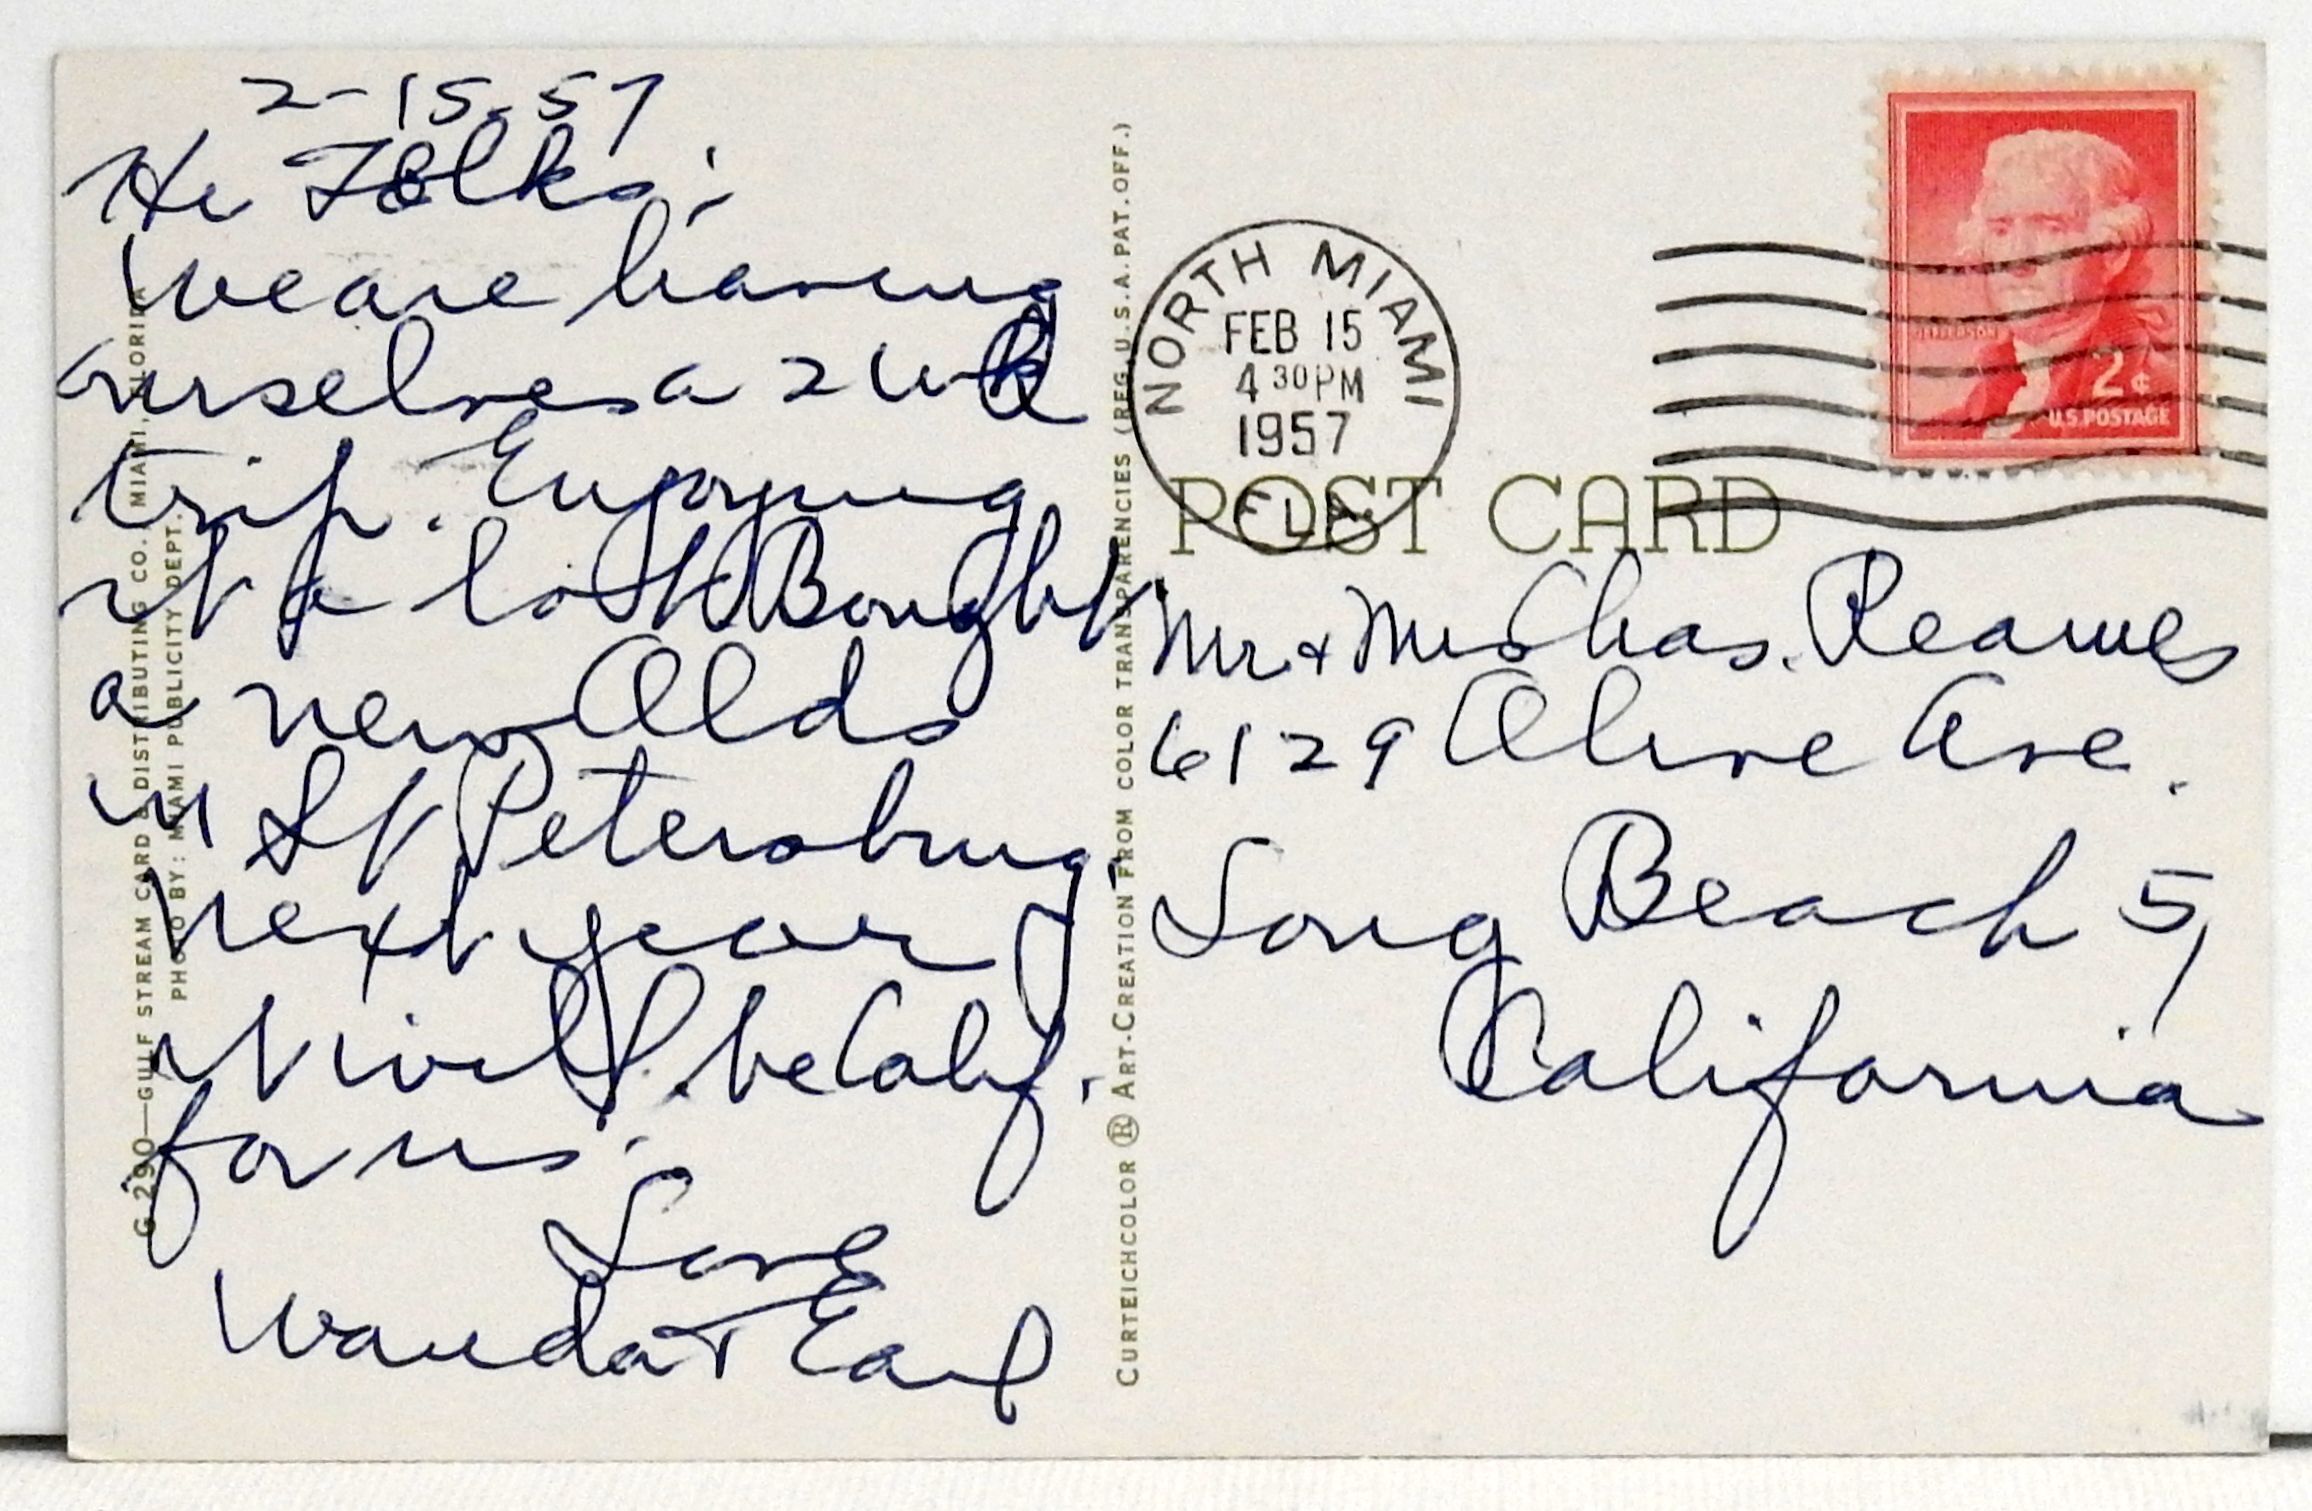 2-15-57
Hi Folks;
We are having
ourselves a 2 wk
trip. Enjoying
it a lot. Bought
a new Olds
in St Petersburg.
Next year
it will be Calif.
for us.
Love
Wanda + Earl
G 290—GULF STREAM CARD & DISTRIBUTING CO. MIAMI, FLORIDA
PHOTO BY: MIAMI PUBLICITY DEPT.
CURTEICHCOLOR ® ART-CREATION FROM COLOR TRANSPARENCIES (REG. U.S.A. PAT. OFF.)
NORTH MIAMI
FEB 15
4 30 PM
1957
FLA.
JEFFERSON
2¢
U.S. POSTAGE
POST CARD
Mr + Mrs Chas. Reames
6129 Olive Ave.
Long Beach 5,
California